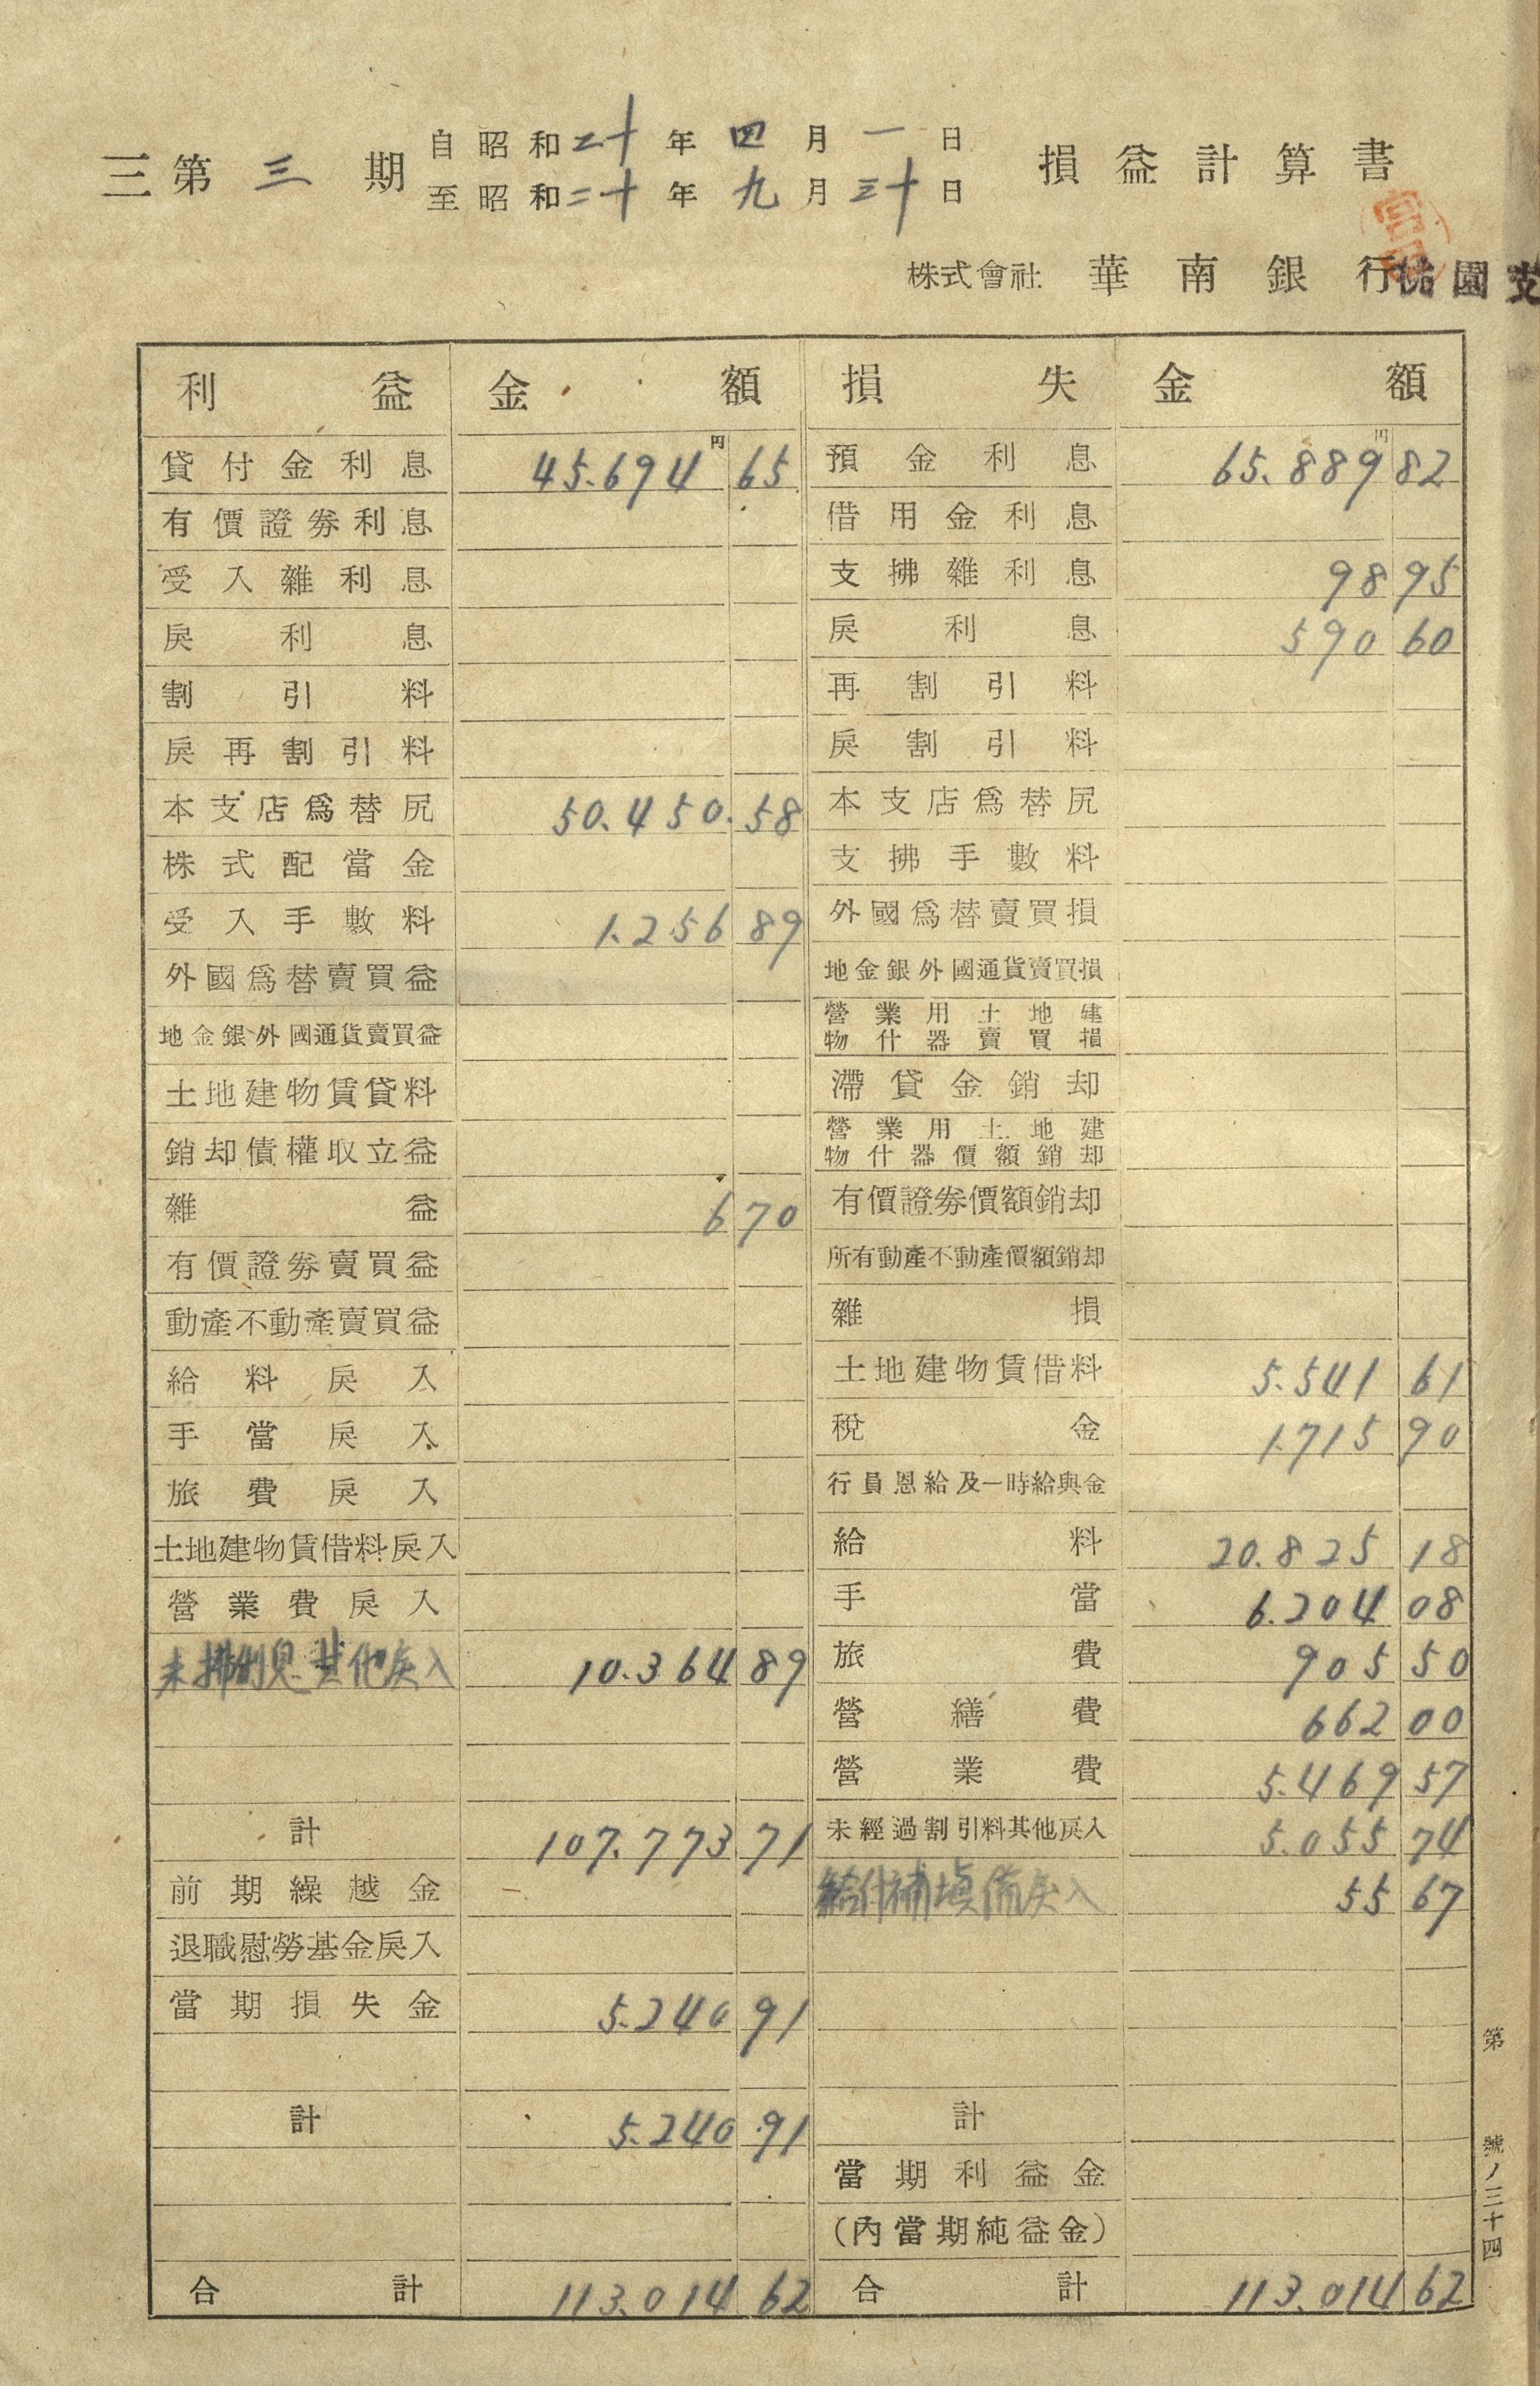 三第三期 自昭和二十年四月一日 至昭和二十年九月三十日 損益計算書
株式會社 華南銀行桃園支
利益 金額 損失 金額
貸付金利息 45.694円65 預金利息 65.889円82
有價證券利息 借用金利息
受入雜利息 支拂雜利息 98 95
戾利息 戾利息 590 60
割引料 再割引料
戾再割引料 戾割引料
本支店爲替尻 50.450.58 本支店爲替尻
株式配當金 支拂手數料
受入手數料 1.256 89 外國爲替賣買損
外國爲替賣買益 地金銀外國通貨賣買損
地金銀外國通貨賣買益 營業用土地建物什器賣買損
土地建物賃貸料 滯貸金銷却
銷却債權取立益 營業用土地建物什器價額銷却
雜益 6 70 有價證券價額銷却
有價證券賣買益 所有動產不動產價額銷却
動產不動產賣買益 雜損
給料戾入 土地建物賃借料 5.541 61
手當戾入 稅金 1.715 90
旅費戾入 行員恩給及一時給與金
土地建物賃借料戾入 給料 20.825 18
營業費戾入 手當 6.204 08
未拂利息其他戾入 10.364 89 旅費 905 50
營繕費 662 00
營業費 5.469 57
計 107.773 71 未經過割引料其他戾入 5.055 74
前期繰越金 給付補塡備戾入 55 67
退職慰勞基金戾入
當期損失金 5.240 91
計 5.240 91 計
當期利益金
(內當期純益金)
合計 113.014 62 合計 113.014 62
第 號ノ三十四